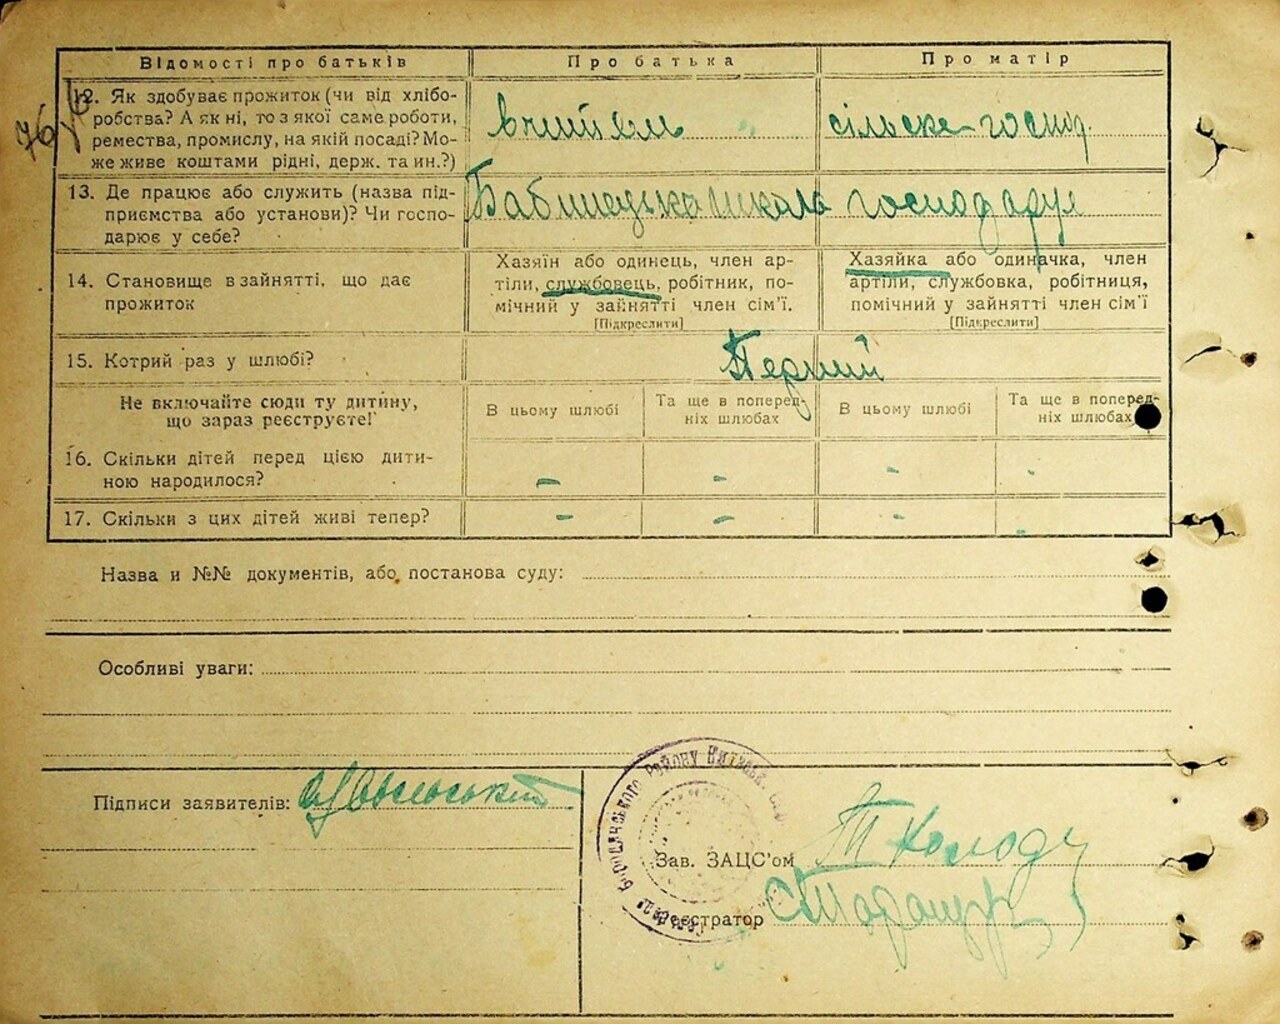 Відомості про батьків
Про батька
Про матір
76
12. Як здобуває прожиток (чи від хлібо-
робства? А як ні, то з якої саме роботи,
ремества, промислу, на якій посаді? Мо-
же живе коштами рідні, держ. та ин.?)
вчитель
сільске господ.
13. Де працює або служить (назва під-
приємства або установи)? Чи госпо-
дарює у себе?
школа
господарує
14. Становище в зайнятті, що дає
прожиток
Хазяїн або одинець, член ар-
тіли, службовець, робітник, по-
мічний у зайнятті член сім'ї.
[Підкреслити]
Хазяйка або одиначка, член
артіли, службовка, робітниця,
помічний у зайнятті член сім'ї
[Підкреслити]
15. Котрий раз у шлюбі?
Перший
Не включайте сюди ту дитину,
що зараз реєструєте!
В цьому шлюбі
Та ще в поперед-
ніх шлюбах
В цьому шлюбі
Та ще в поперед-
ніх шлюбах
16. Скільки дітей перед цією дити-
ною народилося?
- - - -
17. Скільки з цих дітей живі тепер?
- - - -
Назва и №№ документів, або постанова суду:
Особливі уваги:
Підписи заявителів:
Бородянського Району
Зав. ЗАЦС'ом
Реєстратор